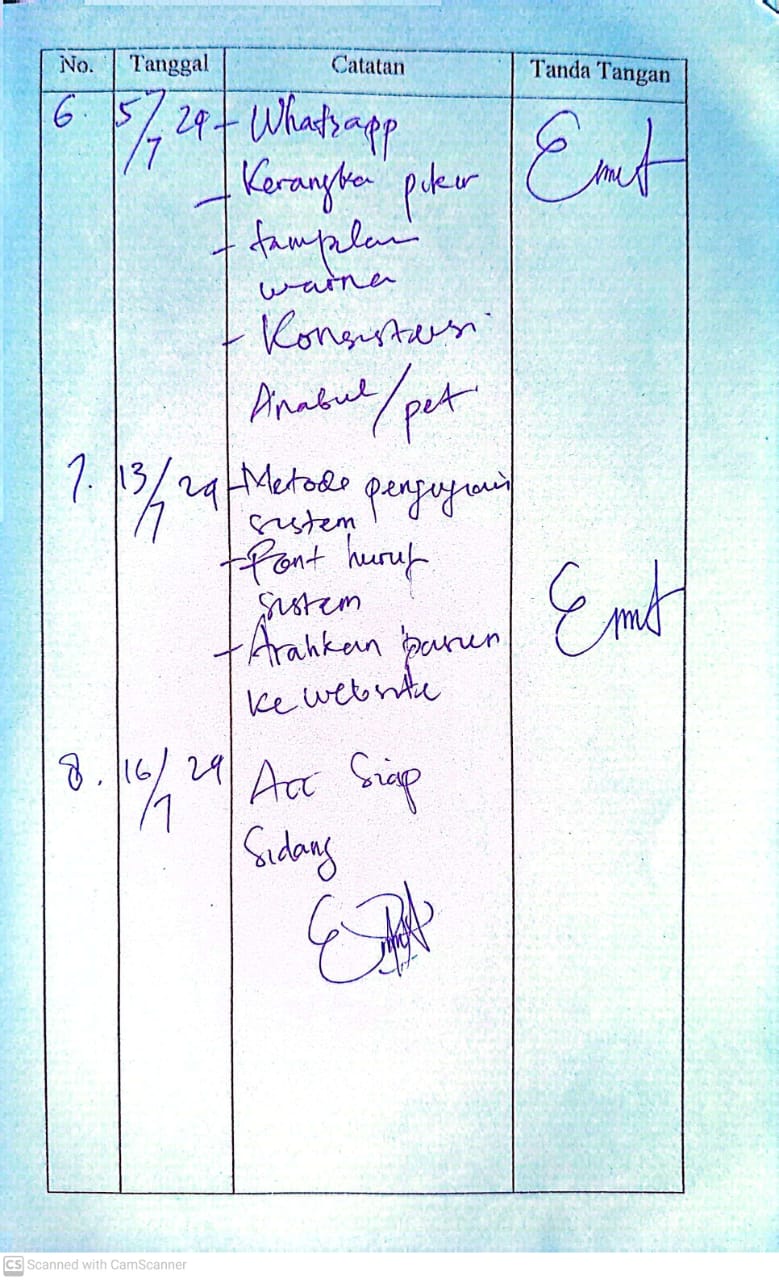 No. Tanggal Catatan Tanda Tangan
6. 5/7 24 - Whatsapp
- Kerangka pikir
- tampilan
warna
- Konsistensi
Anabul/pet
7. 13/7 24 - Metode pengujian
sistem
- Font huruf
sistem
- Arahkan
ke website
8. 16/7 24 Acc Siap
Sidang
CS Scanned with CamScanner